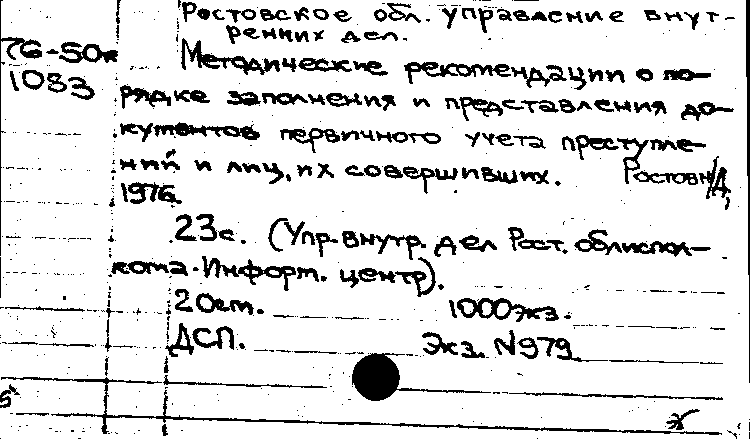 Ростовское обл. управление внут-
ренних дел.
76-50к
1083
Методические рекомендации о по-
рядке заполнения и представления до-
кументов первичного учета преступле-
ний и лиц, их совершивших. Ростов н/Д,
1976.
23с. (Упр. внутр. дел Рост. облиспол-
кома. Информ. центр).
20см. 1000экз.
ДСП. Экз. №979